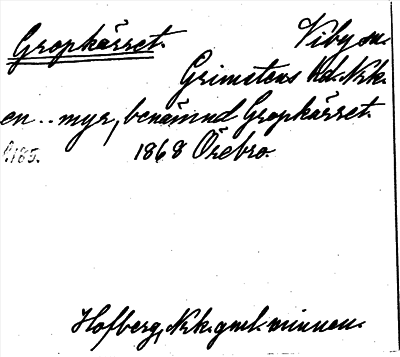 Gropkärret. Viby sn.
Grimstens hd. Nrk.
en .. myr, benämnd Gropkärret.
s. 185. 1868 Örebro.
Hofberg, Nrk. gml. minnen.